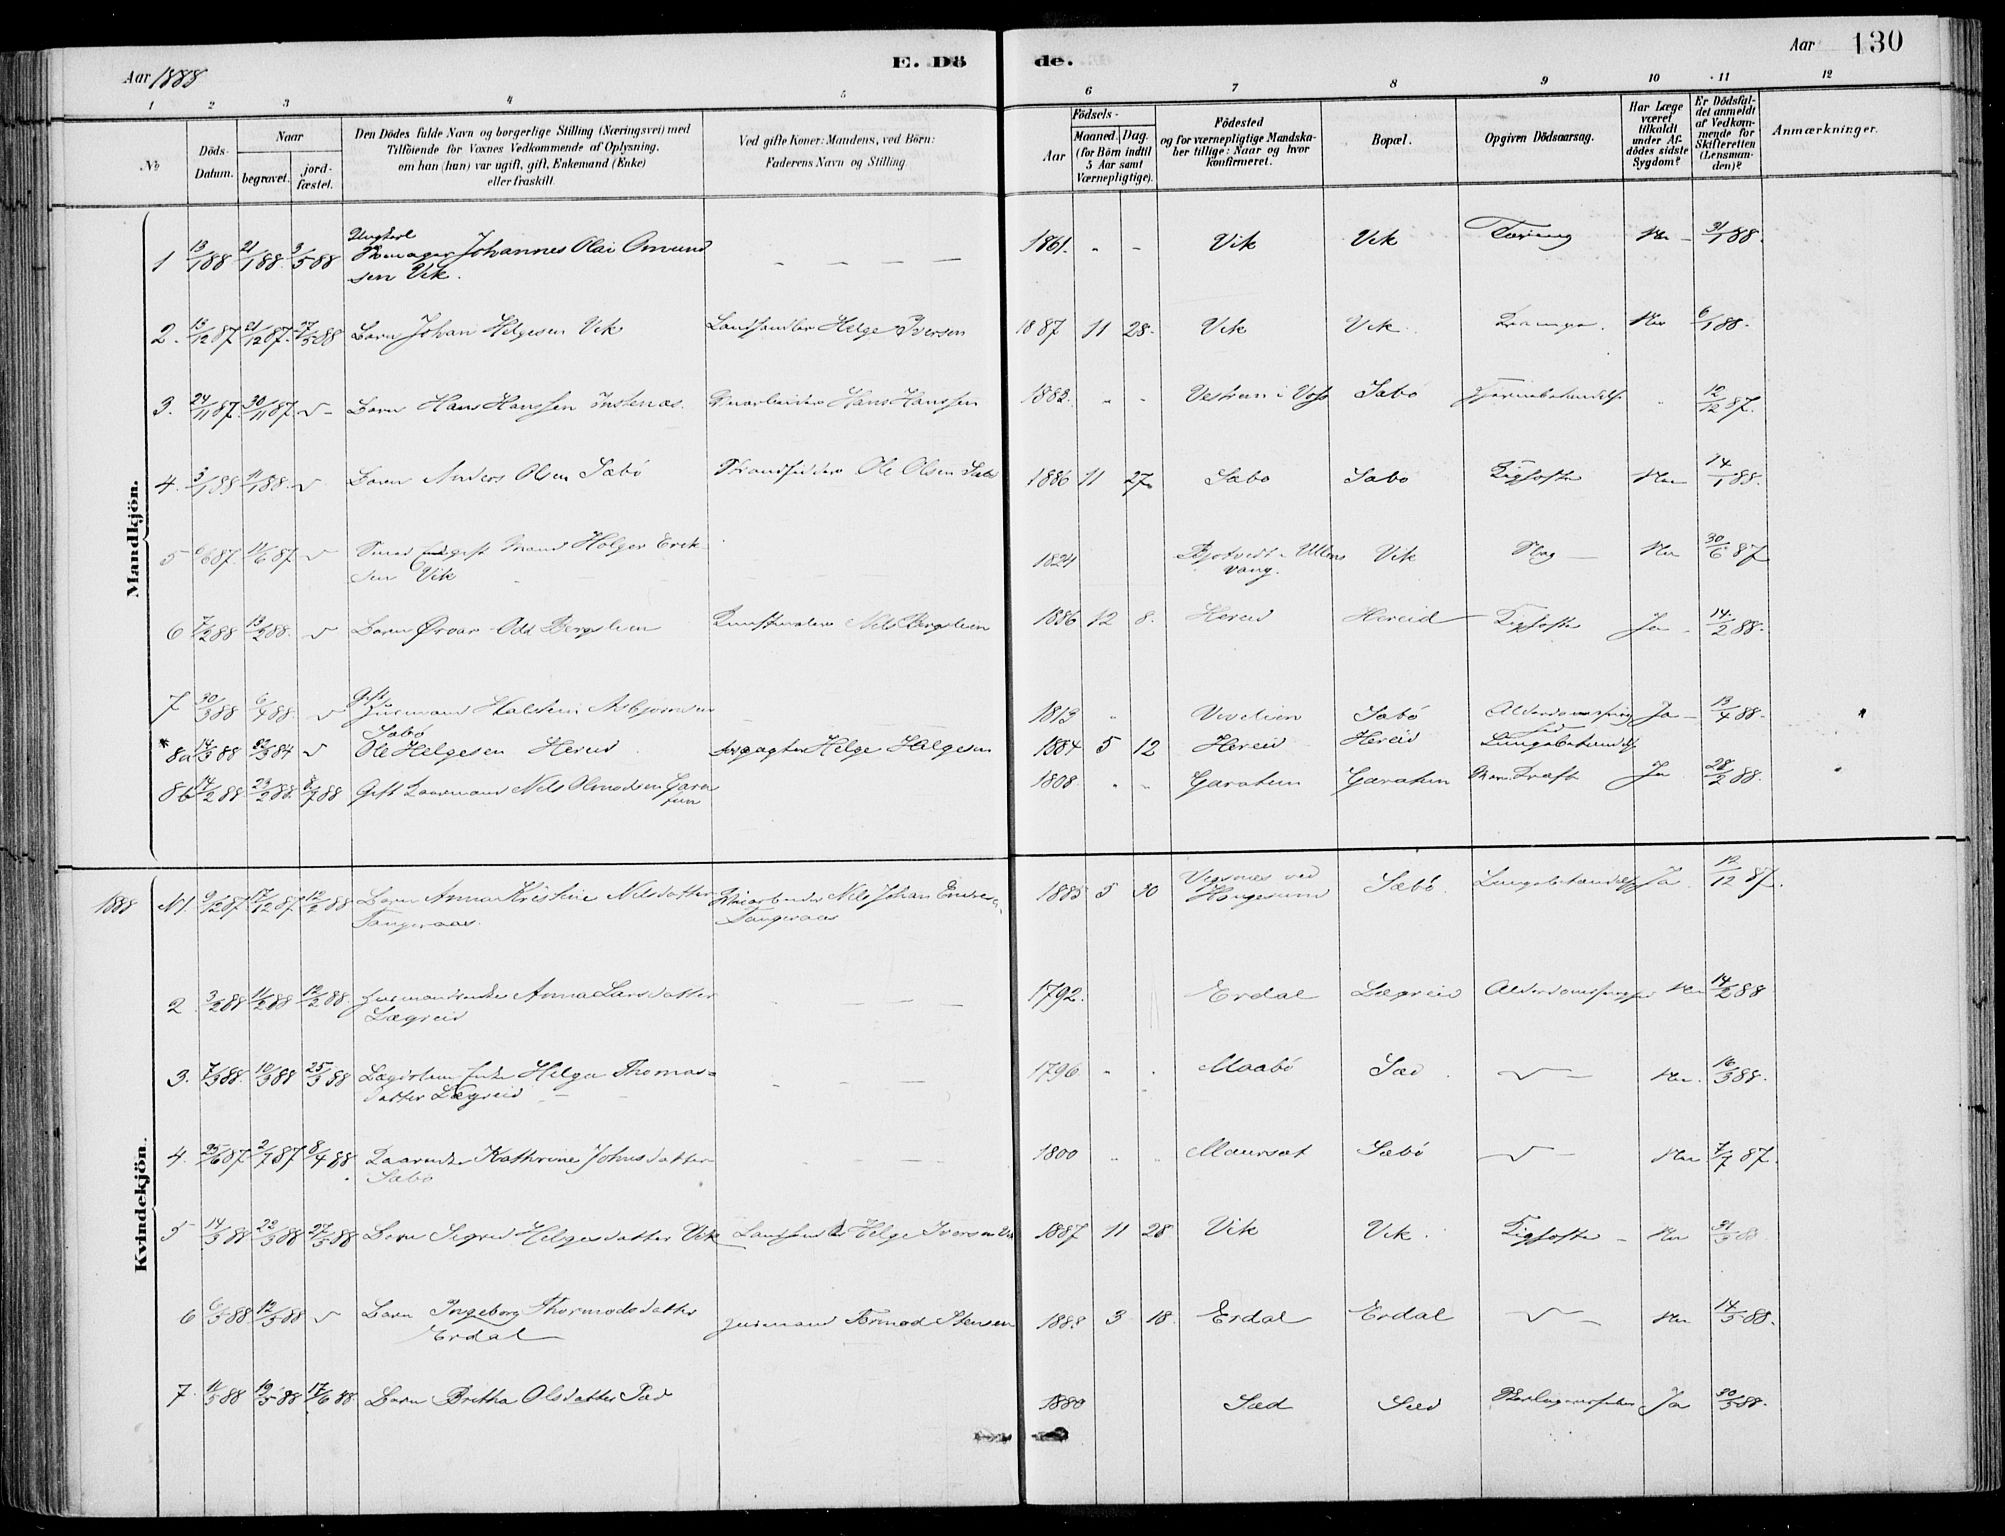 Aar 1888
E. Dö
de.
Aar 130
1 2 3 4 5 6 7 8 9 10 11 12
No
Döds-Datum.
Naar
begravet.
jordfæstet.
Den Dödes fulde Navn og borgerlige Stilling (Næringsvei) med
Tilföiende for Voxnes Vedkommende af Oplysning,
om han (hun) var ugift, gift, Enkemand (Enke)
eller fraskilt.
Ved gifte Koner: Mandens, ved Börn:
Faderens Navn og Stilling.
Födsels-
Aar
Maaned. Dag.
(for Börn indtil
5 Aar samt
Værnepligtige).
Födested
og for værnepligtige Mandskaber tillige: Naar og hvor
konfirmeret.
Bopæl.
Opgiven Dödsaarsag.
Har Læge
været
tilkaldt
under Afdödes sidste
Sygdom?
Er Dödsfaldet anmeldt
af Vedkommende for
Skifteretten
(Lensmanden)?
Anmærkninger.
Mandkjön.
1 13/1 88 21/1 88 3/5 88 Ungkarl
Skomager Johannes Olai Omund
sen Vik. 1861. Vik Vik Tæring Nei 31/1 88.
2. 13/12 87 21/12 87 27/3 88 Barn Johan Helgesen Vik Landhandler Helge Iversen 1887 11 28. Vik Vik. Krampe. Nei 6/1 88.
3. 24/11 87. 30/11 87 Barn Hans Hanssen Instenæs. Hans Hanssen 1883. Vestrem i Voss Sæbö 12/12 87.
4. 3/1 88 11/1 88. Barn Anders Olsen Sæbö Strandsidder Ole Olsen Sæbö 1886 11 27. Sæbo Sæbo Kighoste Nei 14/1 88.
5 6/6 87. 11/6 87 Smed gift Mand Holger Erik-
sen Vik 1824 Ullens
vang. Vik Slag Nei 30/6 87
6 7/2 88 13/2 88. Barn Örvar-Odd Bergslien Kunstmaler Nils Bergslien 1886 12 8. Hereid Hereid Kighoste Ja 14/2 88.
7 30/3 88 6/4 88. Gift
Husmand Halstein Asbjørnsen
Sæbö 1813 Vivelien Sæbö Alderdomssvag
hed Ja 13/4 88.
*8a 14/3 88 22/3 84 Ole Helgesen Hereid Helge Helgesen 1884 5 12 Hereid Hereid Lungebetændelse
8b 14/2 88 23/2 88. 8/7 88 Gift Nils Olmodsen Garatun 1808. Garatun Garatun Kræft Ja 28/2 88.
Kvindekjön.
1888 N1. 9/12 87 17/12 87 12/2 88 Barn Anna Kristine Nilsdatter
Tangeraas. Nils Johan Endresen
Tangeraas 1885 5 30 Vigsnes ved
Haugesund Sæbö. Lungebetændelse Ja. 12/12 87.
2 3/2 88 11/2 88 12/2 88. Husmandsenke Anna Larsdatter
Lægreid 1792. Erdal Lægreid Alderdomssvaghed Nei 14/2 88
3. 7/3 88. 10/3 88 25/3 88 Lægdslem Enke Helga Thomas-
datter Lægreid 1796 Maabö Sæd Nei. 16/3 88.
4. 25/6 87 2/7 87 8/4 88 Kaarenke Kathrine Johnsdatter
Sæbö 1800 Maursæt Sæbö Nei 7/7 87.
5 14/3 88 22/3 88 27/3 88 Barn Sigrid Helgesdatter Vik Landhandler Helge Iversen Vik 1887 11 28 Vik Vik. Kighoste Nei 31/3 88.
6 6/5 88 12/5 88 Barn Ingeborg Thormodsdatter
Erdal Husmand Tormod Stensen 1888 3 18. Erdal Erdal Nei 14/5 88.
7. 11/5 88 19/5 88 17/6 88. Barn Britha Olsdatter Sæd 1880 Sæd Sæd Ja 30/5 88.